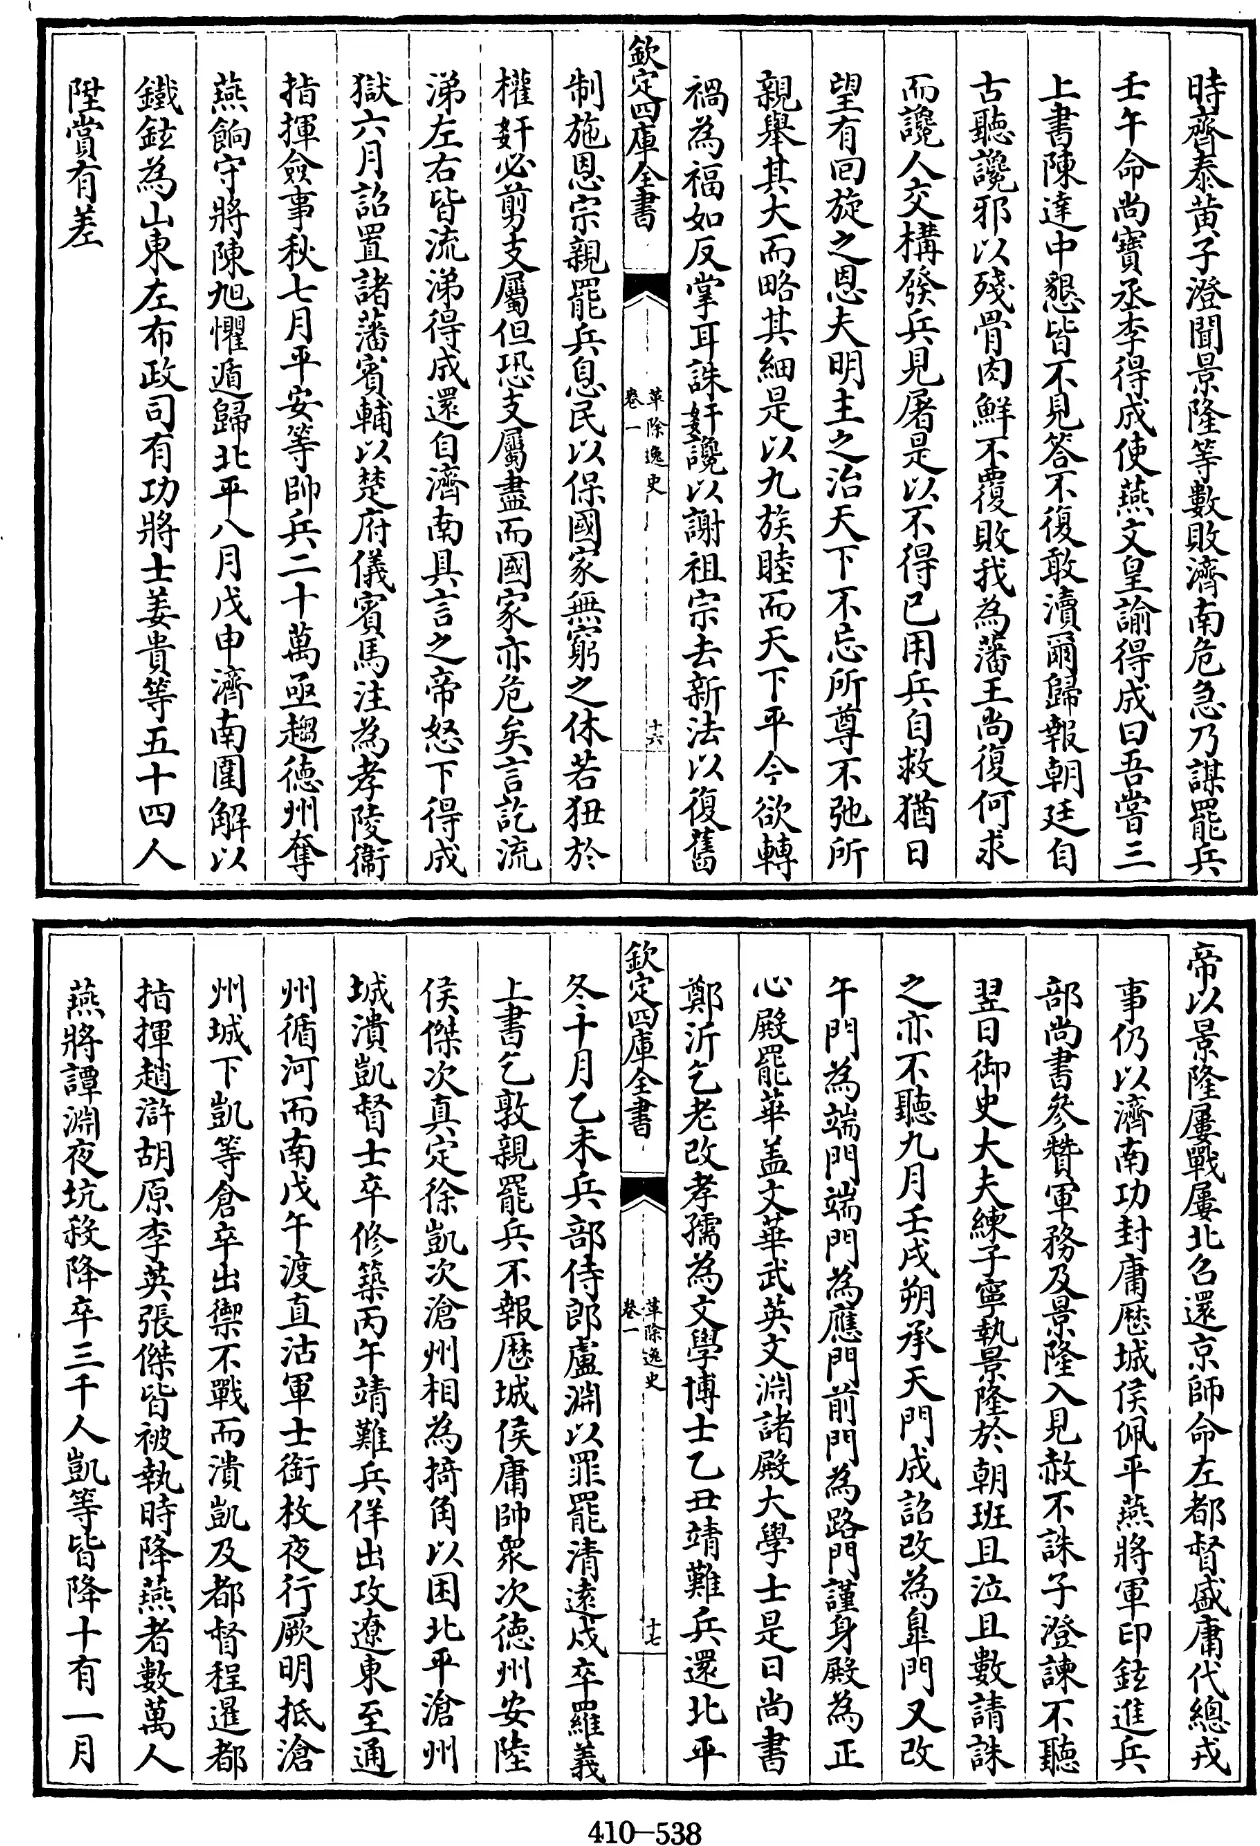 時齊泰黄子澄聞景隆等數敗濟南危急乃謀罷兵
壬午命尚寶丞李得成使燕文皇諭得成曰吾嘗三
上書陳達中懇皆不見答不復敢瀆爾歸報朝廷自
古聽讒邪以殘骨肉鮮不覆敗我為藩王尚復何求
而讒人交構發兵見屠是以不得已用兵自救猶日
望有回旋之恩夫明主之治天下不忘所尊不弛所
親舉其大而略其細是以九族睦而天下平今欲轉
禍為福如反掌耳誅姦讒以謝祖宗去新法以復舊
欽定四庫全書
革除逸史
卷一
十六
制施恩宗親罷兵息民以保國家無窮之休若狃於
權奸必剪支屬但恐支屬盡而國家亦危矣言訖流
涕左右皆流涕得成還自濟南具言之帝怒下得成
獄六月詔置諸藩賓輔以楚府儀賓馬注為孝陵衞
指揮僉事秋七月平安等帥兵二十萬亟趨徳州奪
燕餉守將陳旭懼遁歸北平八月戊申濟南圍解以
鐵鉉為山東左布政司有功將士姜貴等五十四人
陞賞有差
帝以景隆屢戰屢北召還京師命左都督盛庸代總戎
事仍以濟南功封庸歴城侯佩平燕將軍印鉉進兵
部尚書參贊軍務及景隆入見赦不誅子澄諫不聽
翌日御史大夫練子寧執景隆於朝班且泣且數請誅
之亦不聽九月壬戌朔承天門成詔改為臯門又改
午門為端門端門為應門前門為路門謹身殿為正
心殿罷華盖文華武英文淵諸殿大學士是日尚書
鄭沂乞老改孝孺為文學博士乙丑靖難兵還北平
欽定四庫全書
革除逸史
卷一
十七
冬十月乙未兵部侍郎盧淵以罪罷清逺戍卒羅義
上書乞敦親罷兵不報歴城侯庸帥衆次徳州安陸
侯傑次真定徐凱次滄州相為掎角以困北平滄州
城潰凱督士卒修築丙午靖難兵佯出攻遼東至通
州循河而南戊午渡直沽軍士銜枚夜行厥明抵滄
州城下凱等倉卒出禦不戰而潰凱及都督程暹都
指揮趙滸胡原李英張傑皆被執時降燕者數萬人
燕將譚淵夜坑殺降卒三千人凱等皆降十有一月
410—538